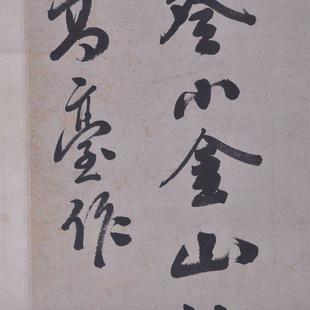 登小金山
高臺作